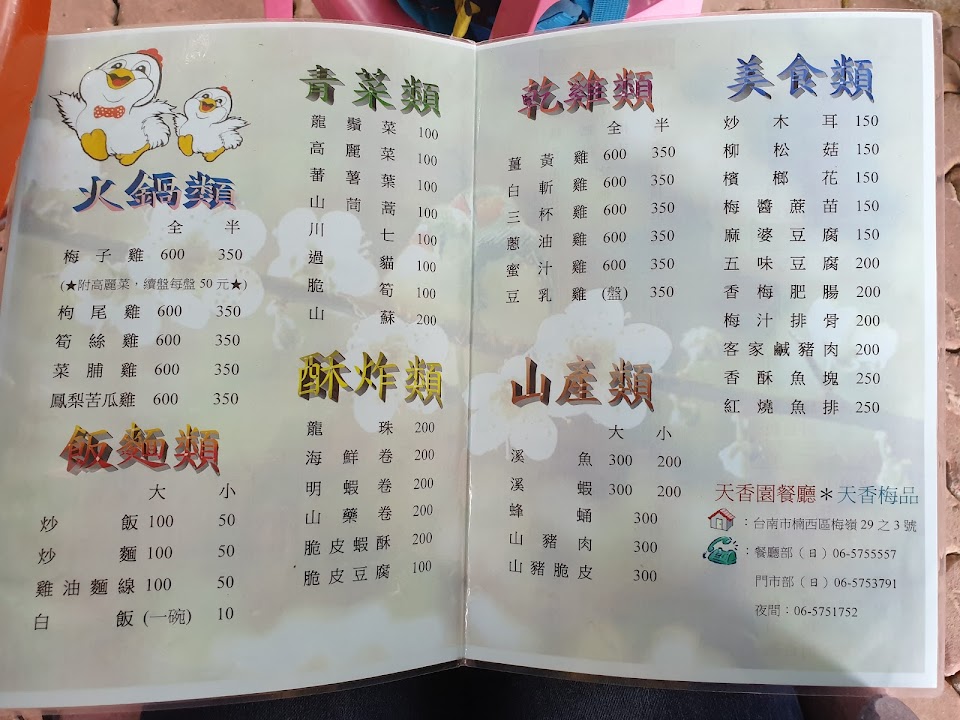 火鍋類
全 半
梅子雞 600 350
(★附高麗菜，續盤每盤50元★)
枸尾雞 600 350
筍絲雞 600 350
菜脯雞 600 350
鳳梨苦瓜雞 600 350
飯麵類
大 小
炒飯 100 50
炒麵 100 50
雞油麵線 100 50
白飯 (一碗) 10
青菜類
龍鬚菜 100
高麗菜 100
蕃薯葉 100
山茼蒿 100
川七 100
過貓 100
脆筍 100
山蘇 200
酥炸類
龍珠 200
海鮮卷 200
明蝦卷 200
山藥卷 200
脆皮蝦酥 200
脆皮豆腐 100
乾雞類
全 半
薑黃雞 600 350
白斬雞 600 350
三杯雞 600 350
蔥油雞 600 350
蜜汁雞 600 350
豆乳雞 (盤) 350
山產類
大 小
溪魚 300 200
溪蝦 300 200
蜂蛹 300
山豬肉 300
山豬脆皮 300
美食類
炒木耳 150
柳松菇 150
檳榔花 150
梅醬蔗苗 150
麻婆豆腐 150
五味豆腐 200
香梅肥腸 200
梅汁排骨 200
客家鹹豬肉 200
香酥魚塊 250
紅燒魚排 250
天香園餐廳＊天香梅品
：台南市楠西區梅嶺29之3號
：餐廳部（日）06-5755557
門市部（日）06-5753791
夜間：06-5751752